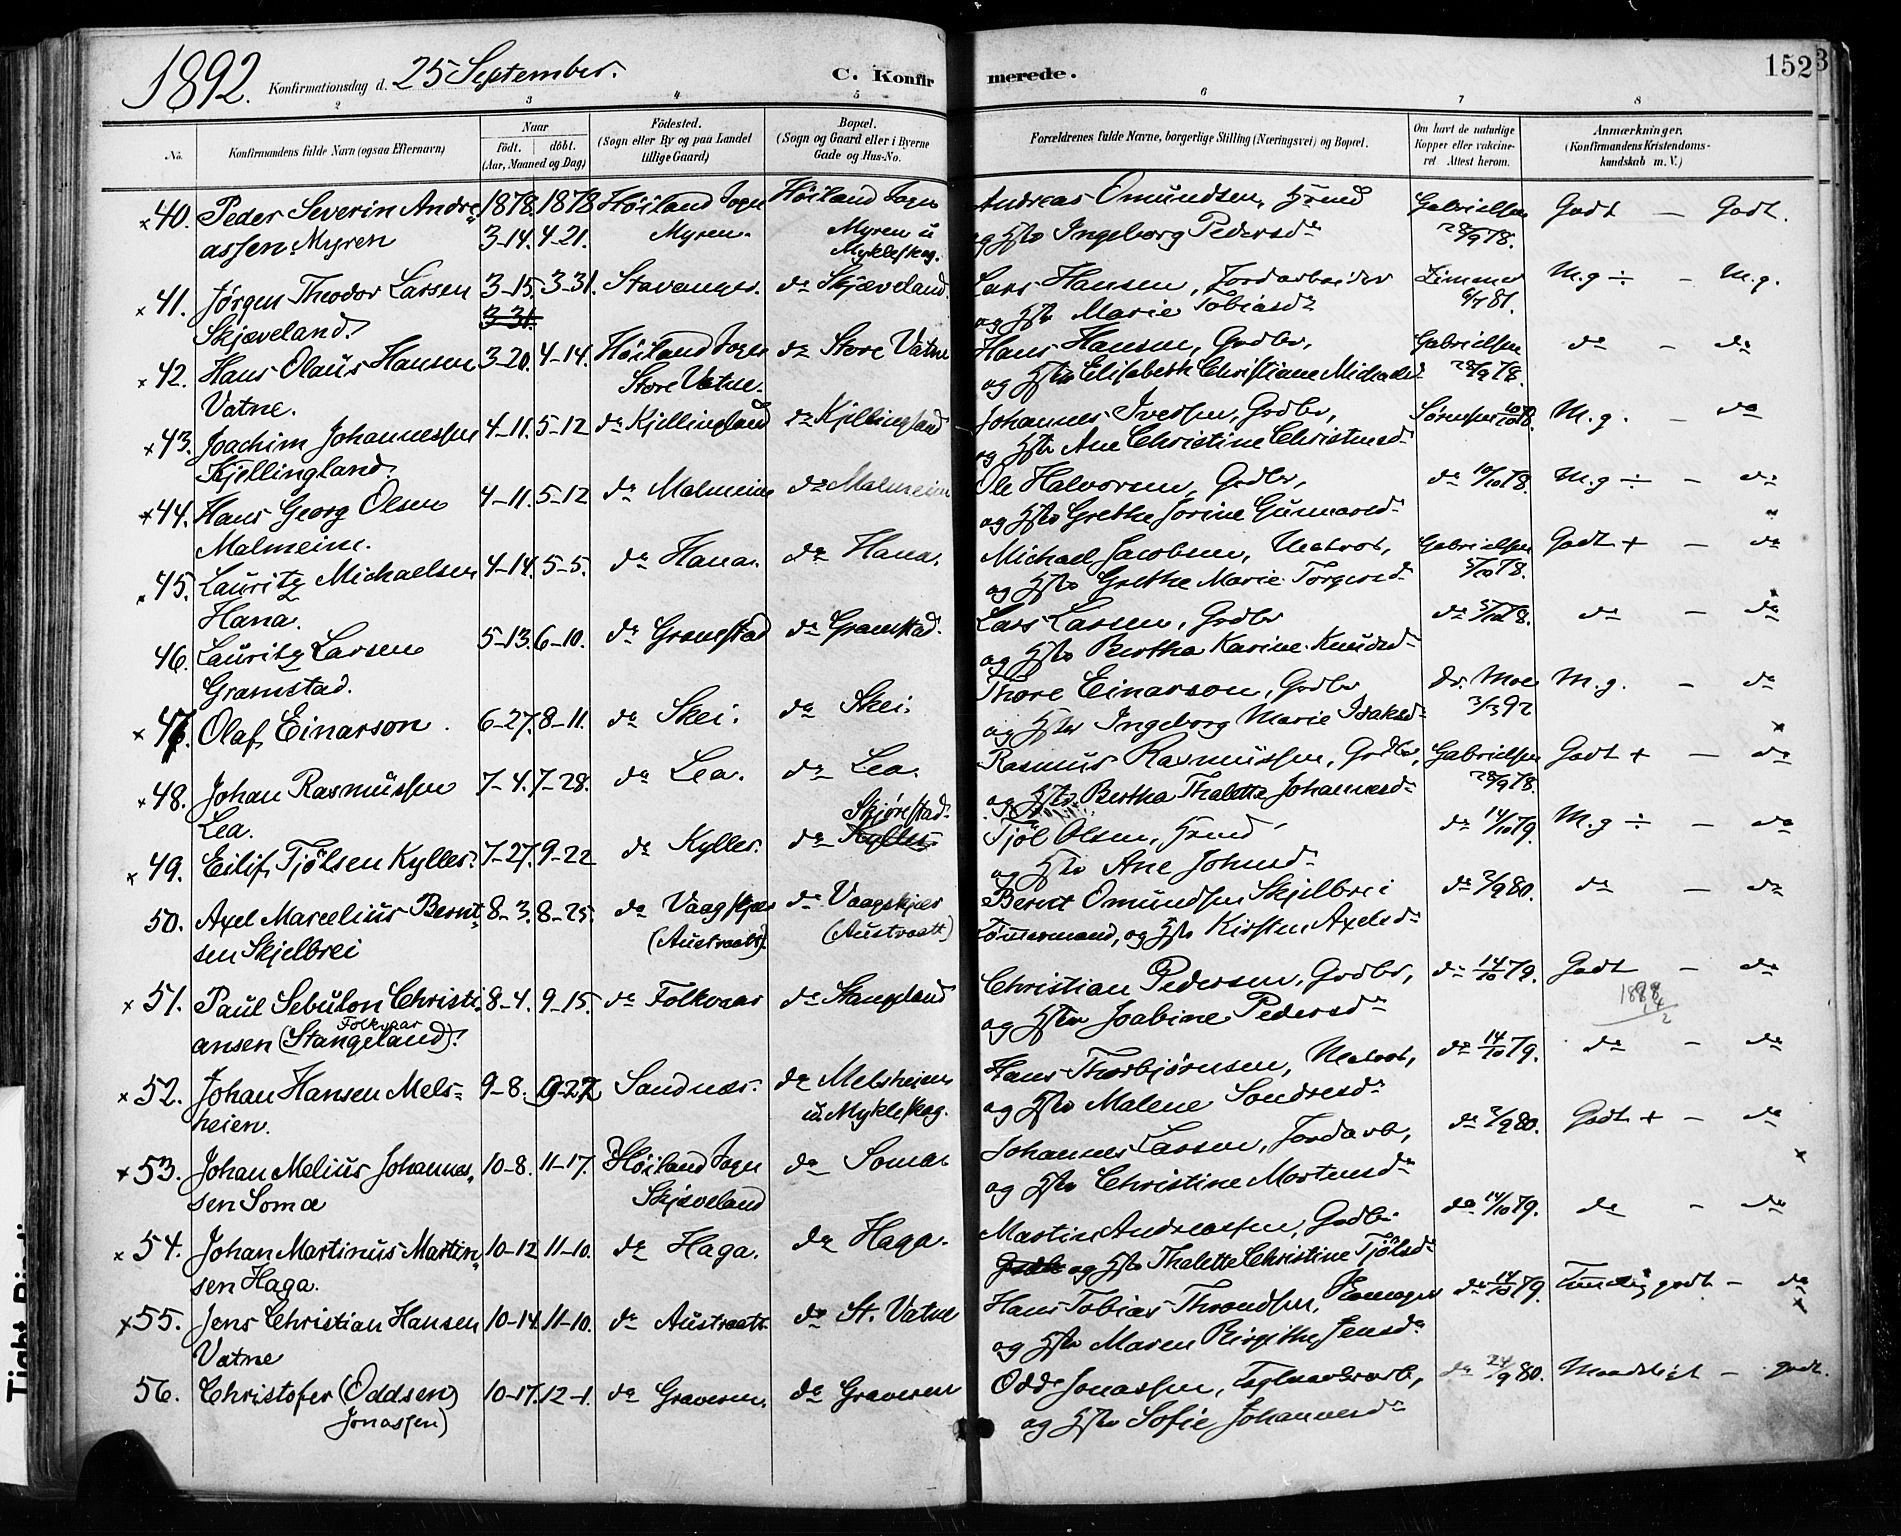 1892. Konfirmationsdag d. 25 September. C. Konfirmerede. 152
2 3 4 5 6 7 8
No. Konfirmandens fulde Navn (ogsaa Efternavn) Naar født. døbt. (Aar, Maaned og Dag) Fødested. (Sogn eller By og paa Landet tillige Gaard) Bopæl. (Sogn og Gaard eller i Byerne Gade og Hus-No. Forældrenes fulde Navne, borgerlige Stilling (Næringsvei) og Bopæl. Om havt de naturlige Kopper eller vaccineret Attest herom. Anmærkninger. (Konfirmandens Kristendomskundskab m. V.)
× 40. Peder Severin Andre- 1878. 1878 Høiland Sogn Høiland Sogn Andreas Omundsen, Gmd Gabrielsen Godt — Godt.
assen Myren 3-14. 4-21. Myren. Myren u Myklefskog. og Hstr Ingeborg Pedersd. 28/9 78.
× 41. Jørgen Theodor Larsen 3-15. 3-31. Stavanger. do Skjæveland. Lars Hansen, Jordarbeider Zimmer M.g ÷ — M.g.
Skjæveland. 3-31. og Hstr Marie Tobiasd. 81.
× 42. Hans Olaus Hansen 3-20. 4-14. Høiland Sogn do Store Vatne Hans Hansen, Grdbr, Gabrielsen do — do
Vatne. Store Vatne. og Hstr Elisabeth Christiane Michaelsd. 28/9 78.
× 43. Joachim Johannessen 4-11. 5-12 do Kjellingland do Kjellingland Johannes Iversen, Grdbr, Sørensen 10/10 78. M.g. — do
Kjellingland. og Hstr Ane Christine Christensd.
× 44. Hans Georg Olsen 4-11. 5-12 do Malmeim do Malmeim Ole Halvorsen, Grdbr, do 10/10 78. M.g ÷ — do
Malmeim. og Hstr Grethe Jorine Gunnarsd.
45. Lauritz Michaelsen 4-14. 5-5. do Hana. do Hana. Michael Jacobsen, Matros, Gabrielsen Godt + — do
Hana. og Hstr Grethe Marie Torgersd. 5/10 78.
46. Lauritz Larsen 5-13. 6-10. do Gramstad do Gramstad. Lars Larsen, Grdbr do 5/10 78. do — do
Gramstad. og Hstr Bertha Karine Knudsd.
× 47. Olaf Einarson. 6-27. 8-11. do Skei. do Skei. Thore Einarson, Grdbr Dr. Moe M.g. — do
og Hstr Ingeborg Marie Isaksd. 3/3 92
× 48. Johan Rasmussen 7-4. 7-28. do Lea. do Lea. Rasmus Rasmussen, Grdbr, Gabrielsen Godt + — do
Lea. og Hstr Bertha Thalette Johannesd. 28/9 78.
× 49. Eilif Tjølsen Kylles. 7-27. 9-22 do Kylles. do Skjørestad. Kylles. Tjøl Olsen, Gmd do 14/10 79. M.g ÷ — do
og Hstr Ane Johnsd.
50. Axel Marcelius Bernt- 8-3. 8-25. do Vaagskjær do Vaagskjær Bernt Omundsen Skjelbrei do 2/9 80. do — do
sen Skjelbrei (Austraatt). (Austraatt) Tømmermand, og Hstr Kirsten Axelsd.
× 51. Paul Sebulon Christi- 8-4. 9-15. do Folkvaar do Stangeland Christian Pedersen, Grdbr, do 14/10 79. Godt — do
ansen (Stangeland) Folkvaar og Hstr Joabine Pedersd.
× 52. Johan Hansen Mels- 9-8. 9-22 Sandnæs. do Melsheien Hans Thorbjørnsen, Matros, do 14/10 79. do — do
heien. u. Mykleskog. og Hstr Malene Sondresd.
× 53. Johan Melius Johannes- 10-8. 11-17. Høiland Sogn do Soma Johannes Larsen, Jordarb, do 2/9 80. Godt + — do
sen Soma Skjæveland og Hstr Christine Mortensd.
× 54. Johan Martinus Martin- 10-12 11-10. do Haga. do Haga. Martin Andreassen, Grdbr do 14/10 79. do — do
sen Haga. og Hstr Thalette Christine Tjølsd.
× 55. Jens Christian Hansen 10-14. 11-10. do Austraatt do St. Vatne Hans Tobias Throndsen, do 14/10 79. Temmelig godt — do
Vatne og Hstr Maren Birgithe Jensd.
56. Christofer (Oddsen) 10-17. 12-1. do Graveren. do Graveren Odd Jonassen, Teglverksarb, do 24/9 80. Maadeligt — godt.
Jonassen) og Hstr Sofie Johannesd.